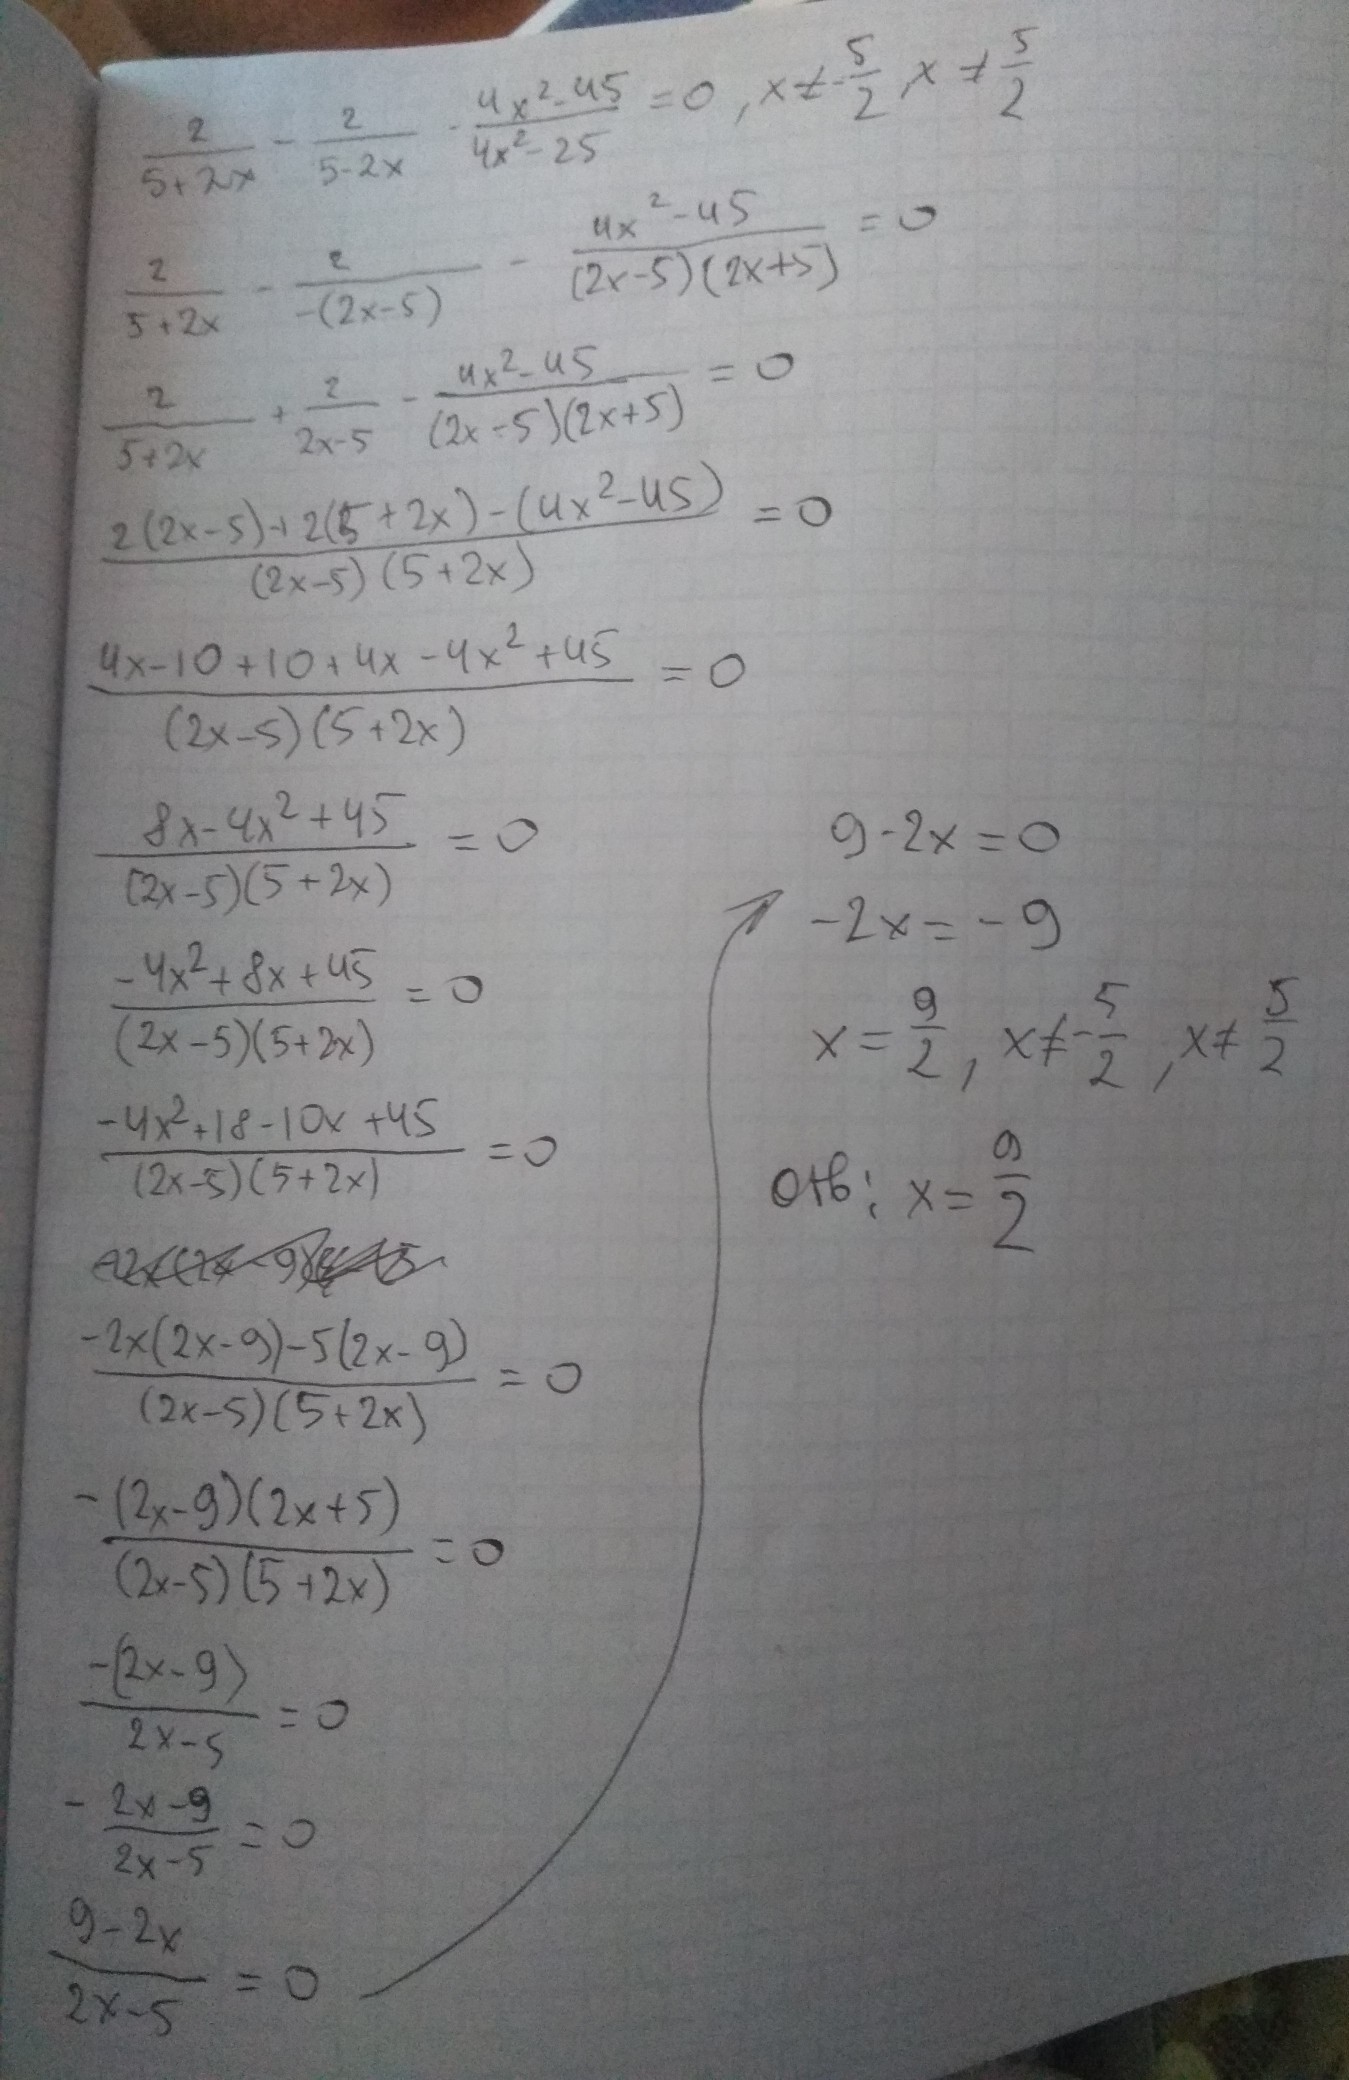 2/(5+2x) - 2/(5-2x) - (4x²-45)/(4x²-25) = 0, x≠-5/2, x≠5/2
2/(5+2x) - 2/(-(2x-5)) - (4x²-45)/((2x-5)(2x+5)) = 0
2/(5+2x) + 2/(2x-5) - (4x²-45)/((2x-5)(2x+5)) = 0
(2(2x-5)+2(5+2x)-(4x²-45))/((2x-5)(5+2x)) = 0
(4x-10+10+4x-4x²+45)/((2x-5)(5+2x)) = 0
(8x-4x²+45)/((2x-5)(5+2x)) = 0
(-4x²+8x+45)/((2x-5)(5+2x)) = 0
(-4x²+18-10x+45)/((2x-5)(5+2x)) = 0
(-2x(2x-9)-5(2x-9))/((2x-5)(5+2x)) = 0
-(2x-9)(2x+5)/((2x-5)(5+2x)) = 0
-(2x-9)/(2x-5) = 0
- (2x-9)/(2x-5) = 0
(9-2x)/(2x-5) = 0
9-2x=0
-2x=-9
x=9/2, x≠-5/2, x≠5/2
отв: x=9/2